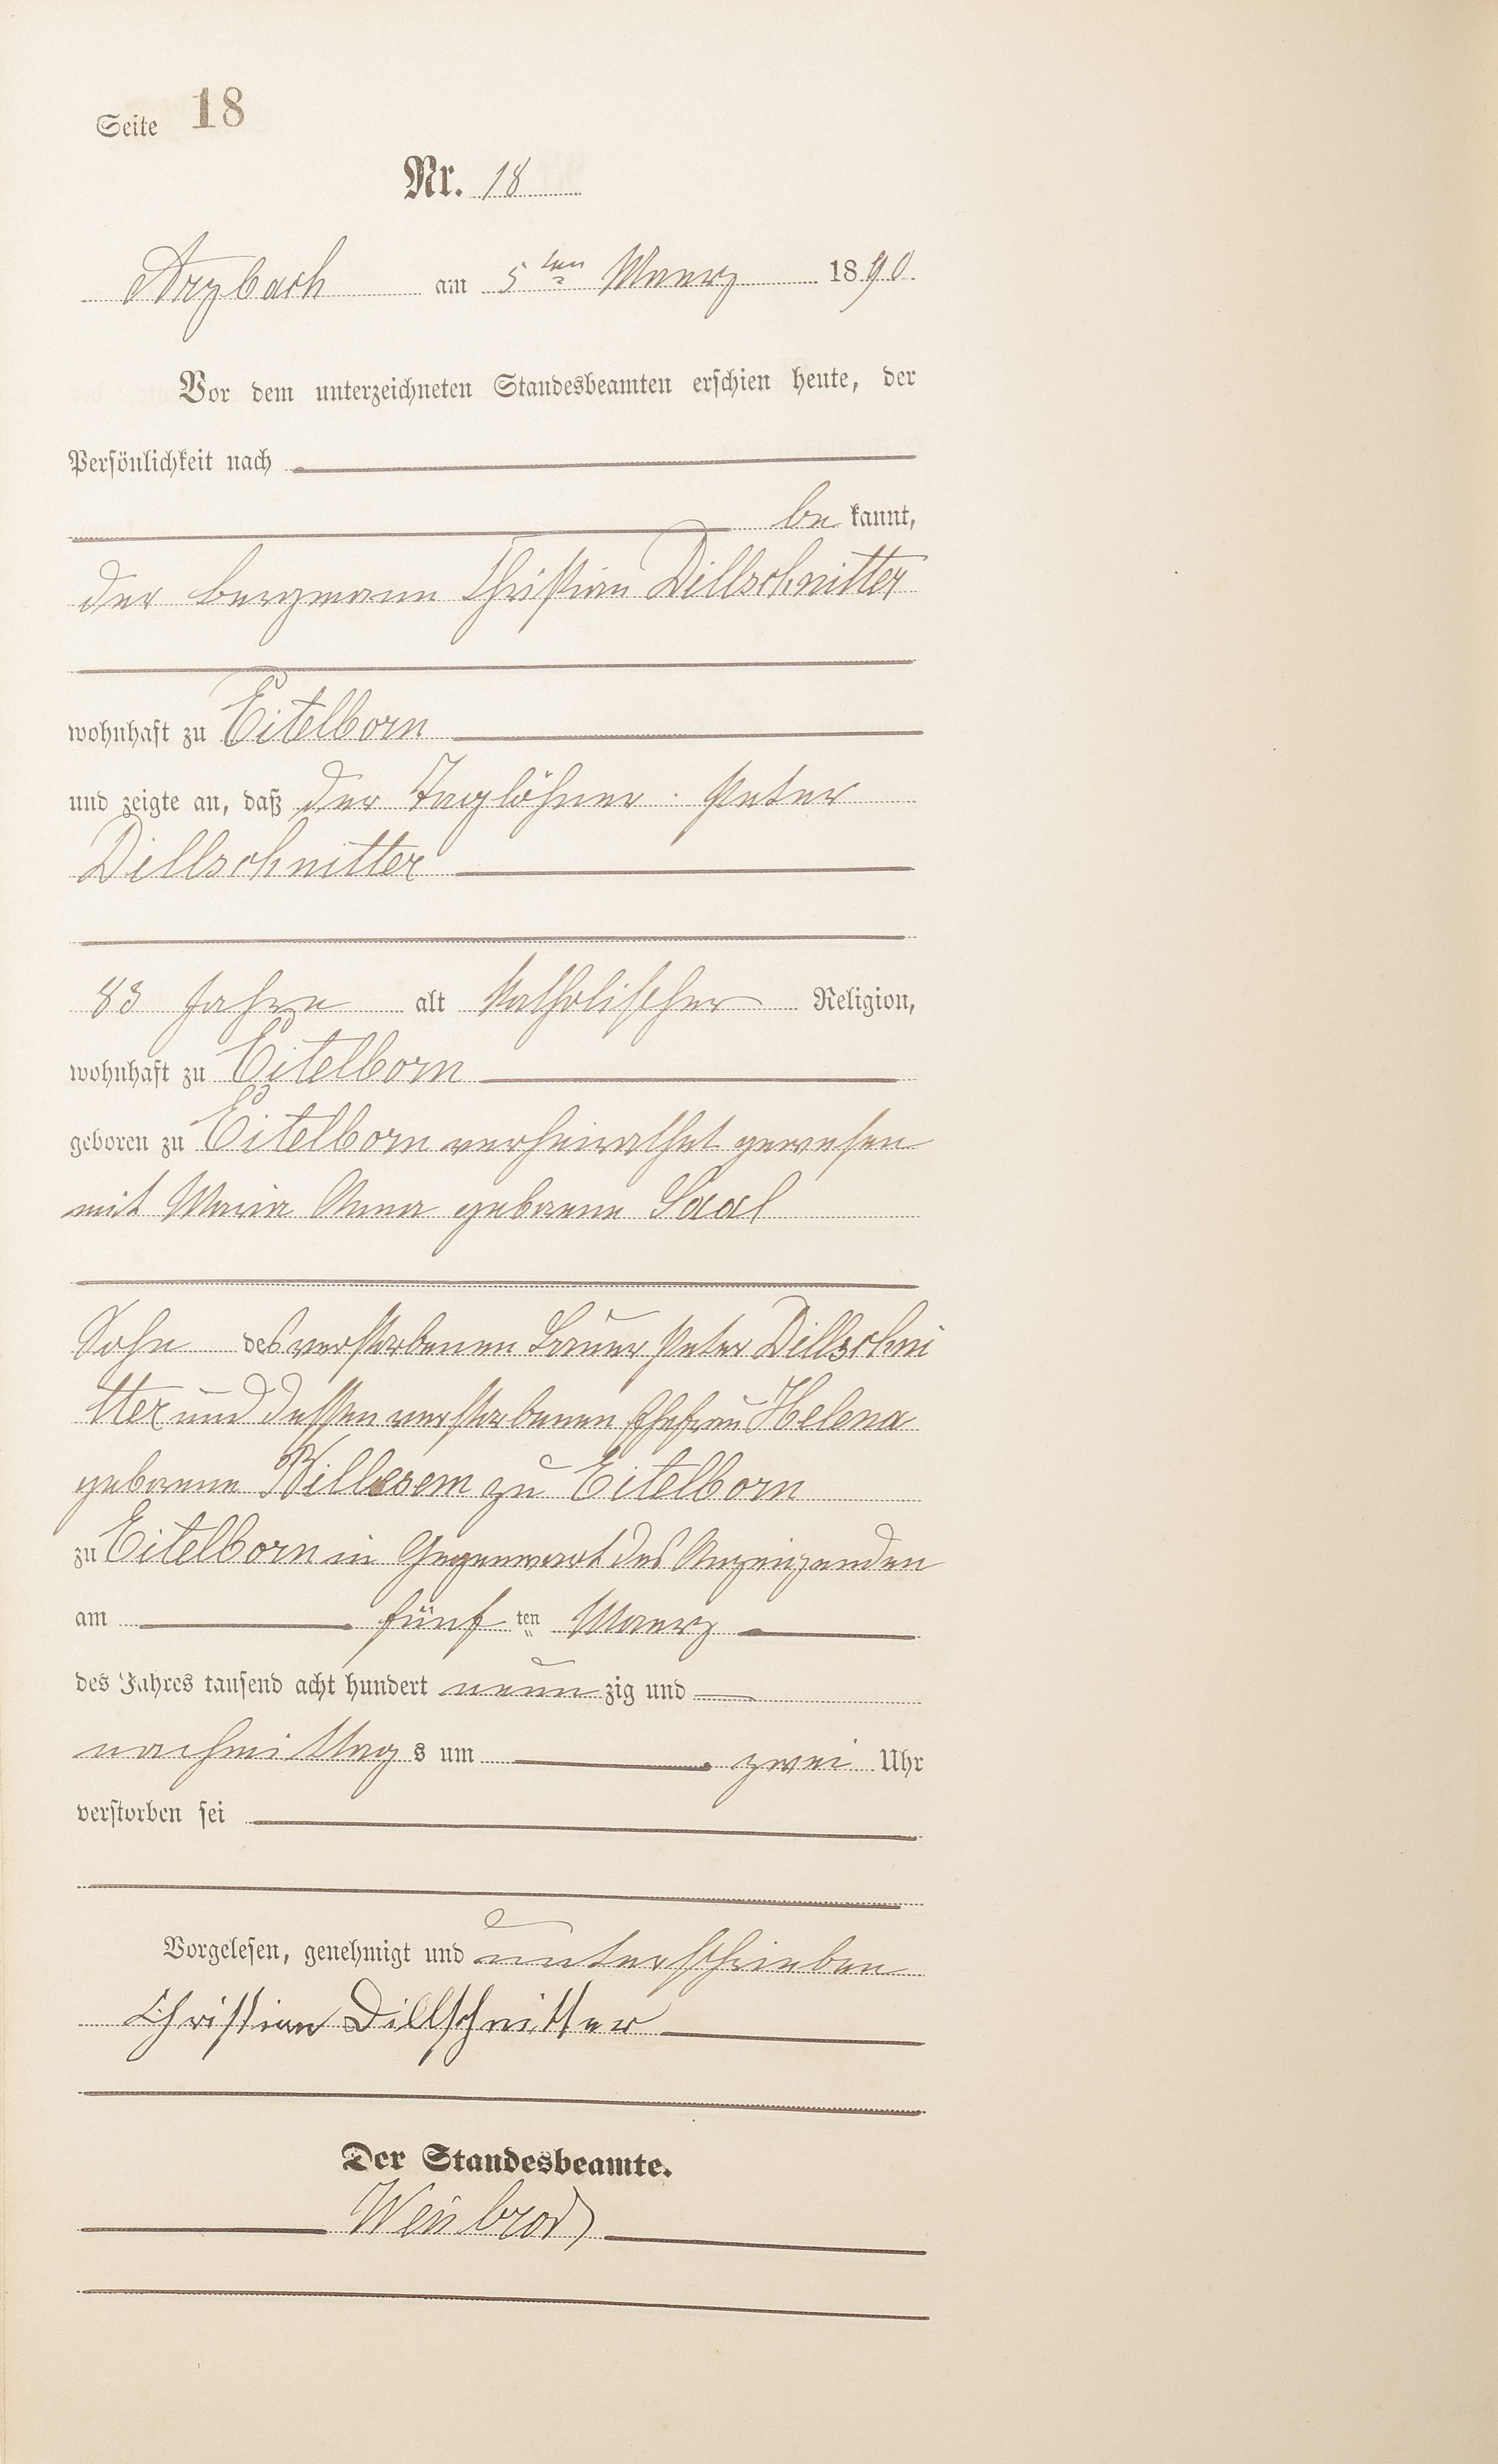 Seite 18
Nr. 18
Arzbach am 5ten Maerz 1890.
Vor dem unterzeichneten Standesbeamten erschien heute, der
Persönlichkeit nach
be kannt,
der Bergmann Christian Dillschnitter
wohnhaft zu Eitelborn
und zeigte an, daß der Taglöhner Peter
Dillschnitter
83 Jahre alt katholischer Religion,
wohnhaft zu Eitelborn
geboren zu Eitelborn verheirathet gewesen
mit Maria Anna geborene Saal
Sohn des verstorbenen Bauer Peter Dillschni
tter und dessen verstorbenen Ehefrau Helena
geborene zu Eitelborn
zu Eitelborn in Gegenwart des Anzeigenden
am fünf ten Maerz
des Jahres tausend acht hundert neun zig und
nachmittag s um zwei Uhr
verstorben sei
Vorgelesen, genehmigt und unterschrieben
Christian Dillschnitter
Der Standesbeamte.
Weinbrod